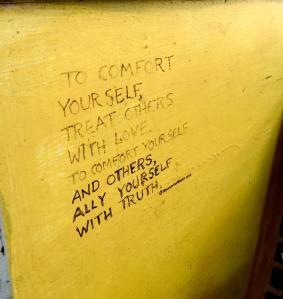 TO COMFORT
YOURSELF,
TREAT OTHERS
WITH LOVE.
TO COMFORT YOURSELF
AND OTHERS,
ALLY YOURSELF
WITH TRUTH.